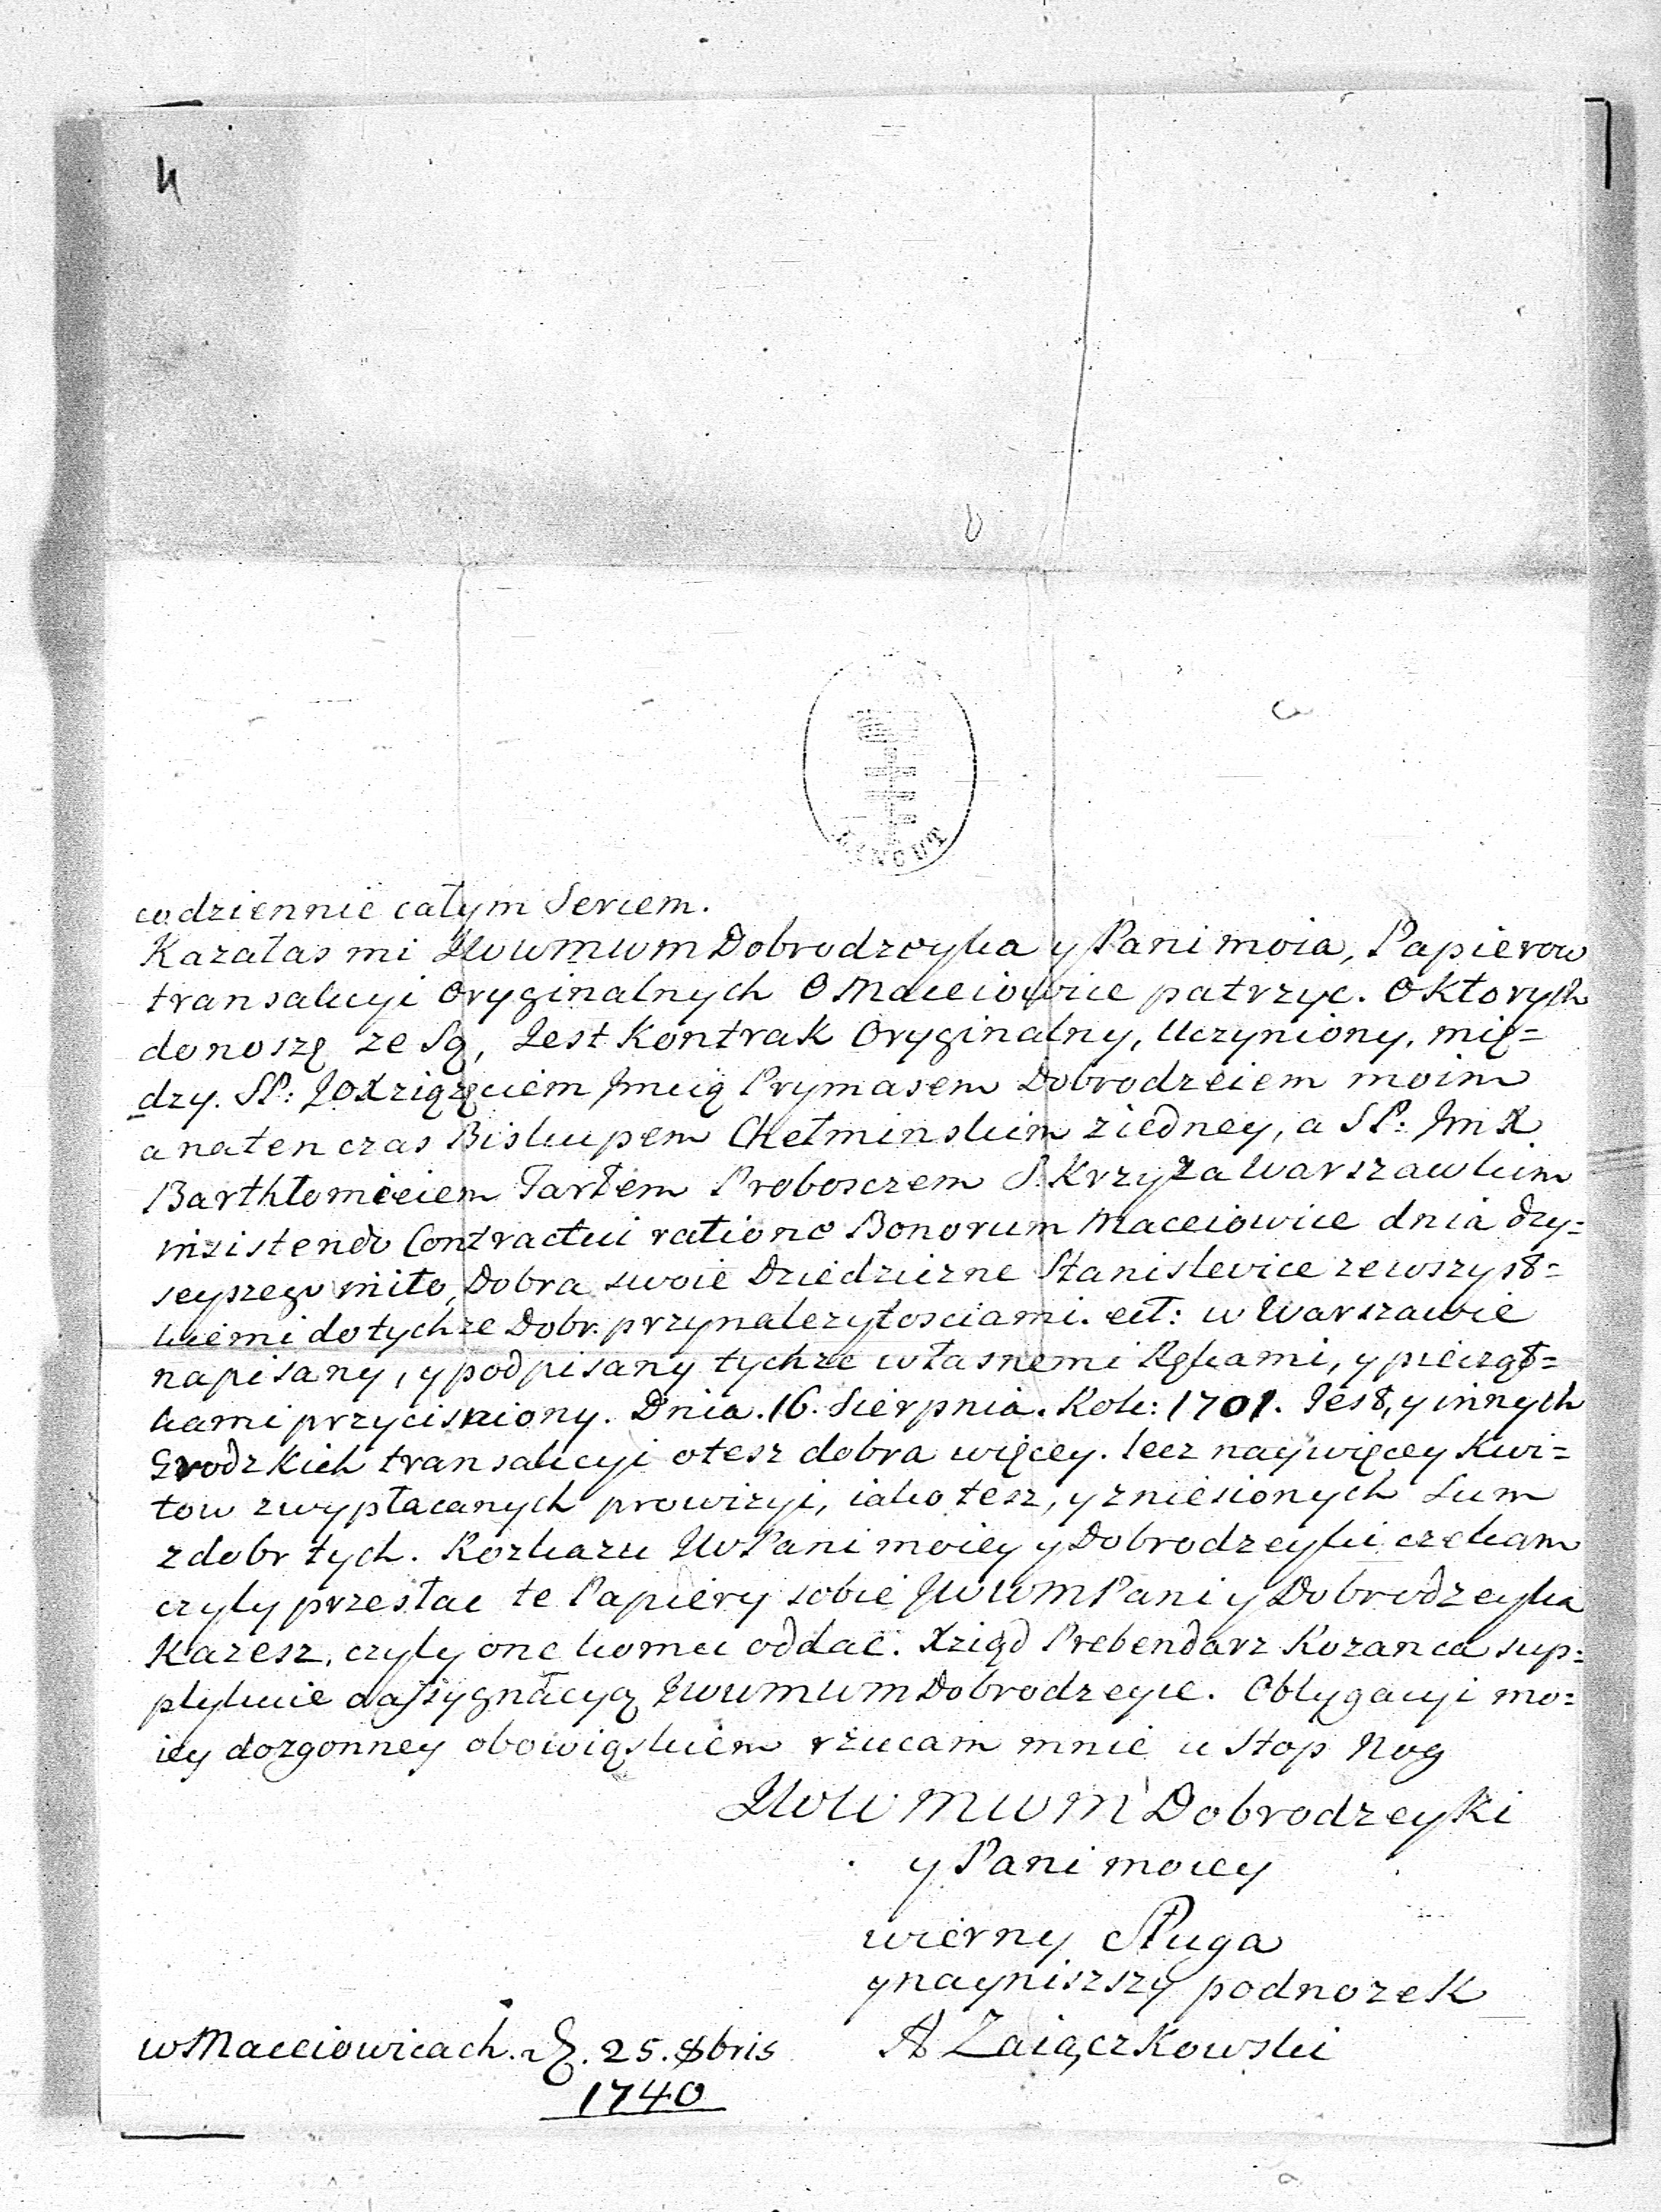 4
ŁAŃCUT
codziennie całym Sercem.
Kazałas mi JWWMWM Dobrodzeyka y Pani moia, Papierow
transakcyi Oryginalnych O Macieiowice patrzyc. O Ktorych
donoszę ze Są, Jest Kontrak Oryginalny, Uczyniony, mię=
dzy. SP: JOXziążęciem Jmcią Prymasem Dobrodzieiem moim
a naten czas Biskupem Chełminskim ziedney, a SP: Jm X
Barthłomieiem Tarłem Proboszczem S. Krzyża Warszawskim
inzistendo Contractui ratione Bonorum Maceiowice dnia dzy=
seyszego miło, Dobra swoie Dziedziczne Stanislevice zewszyst=
kiemi do tychze Dobr. przynalezytosciami. ect: w Warszawie
napisany, y podpisany tychze własnemi Rękami, y pieczęt=
kami przycisniony. Dnia. 16. Sierpnia. Rok: 1701. Jest, y innych
Grodzkich transakcyi otesz dobra więcey. lecz naywięcey Kwi=
tow zwypłacanych prowizyi, iako tesz, y zniesionych Sum
z dobr tych. Rozkazu JW Pani moiey y Dobrodzeyki czekam
czyly przesłac te Papiery sobie JWWM Pani y Dobrodzeyka
Kazesz, czyly one komu oddac. Xziąd Prebendarz Rozanca sup=
plykuie o assygnacyą JWWMWM Dobrodzeyce. Oblygacyi mo=
iey dozgonney obowiąskiem rzucam mnie u Stop Nog
JWWMWM Dobrodzeyki
y Pani moiey
wierny Sługa
ynayniszszy podnozek
w Maceiowicach. D. 25. 8bris A Zaiączkowski
1740